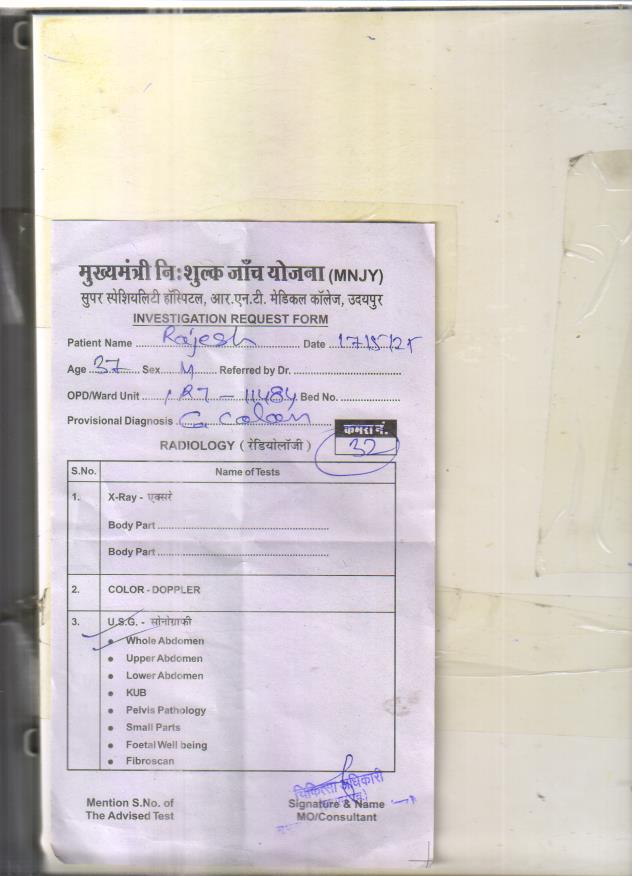 मुख्यमंत्री निःशुल्क जाँच योजना (MNJY)
सुपर स्पेशियलिटी हॉस्पिटल, आर.एन.टी. मेडिकल कॉलेज, उदयपुर
INVESTIGATION REQUEST FORM
Patient Name Rajesh Date 17/5/25
Age 37 Sex M Referred by Dr.
OPD/Ward Unit 11484 Bed No.
Provisional Diagnosis Ca colon
कमरा नं.
RADIOLOGY ( रेडियोलॉजी ) 32
S.No. Name of Tests
1. X-Ray - एक्सरे
Body Part
Body Part
2. COLOR - DOPPLER
3. U.S.G. - सोनोग्राफी
• Whole Abdomen
• Upper Abdomen
• Lower Abdomen
• KUB
• Pelvis Pathology
• Small Parts
• Foetal Well being
• Fibroscan
चिकित्सा अधिकारी
Mention S.No. of Signature & Name
The Advised Test MO/Consultant